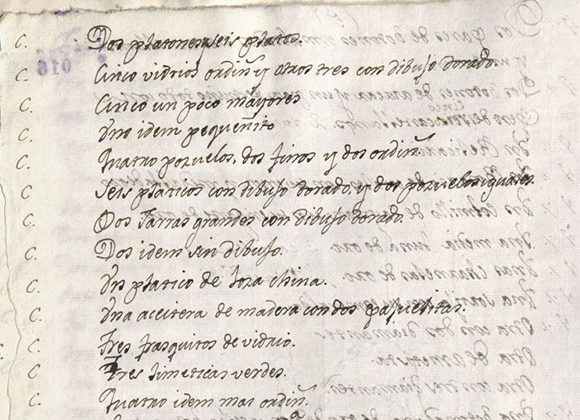 C. Dos platones, seis platos.
C. Cinco vidrios ordin.s y otros tres con dibujo dorado.
C. Cinco un poco mayores
C. Uno idem pequeñito
C. Quatro pozuelos, dos finos y dos ordin.s
C. Seis platicos con dibujo dorado, y dos pozuelos iguales.
C. Dos Jarras grandes con dibujo dorado.
C. Dos idem sin dibujo.
C. Un platico de loza china.
C. Una aceitera de madera con dos
C. Tres frasquitos de vidrio.
C. Tres limeticas verdes.
C. Quatro idem mas ordin.s
016